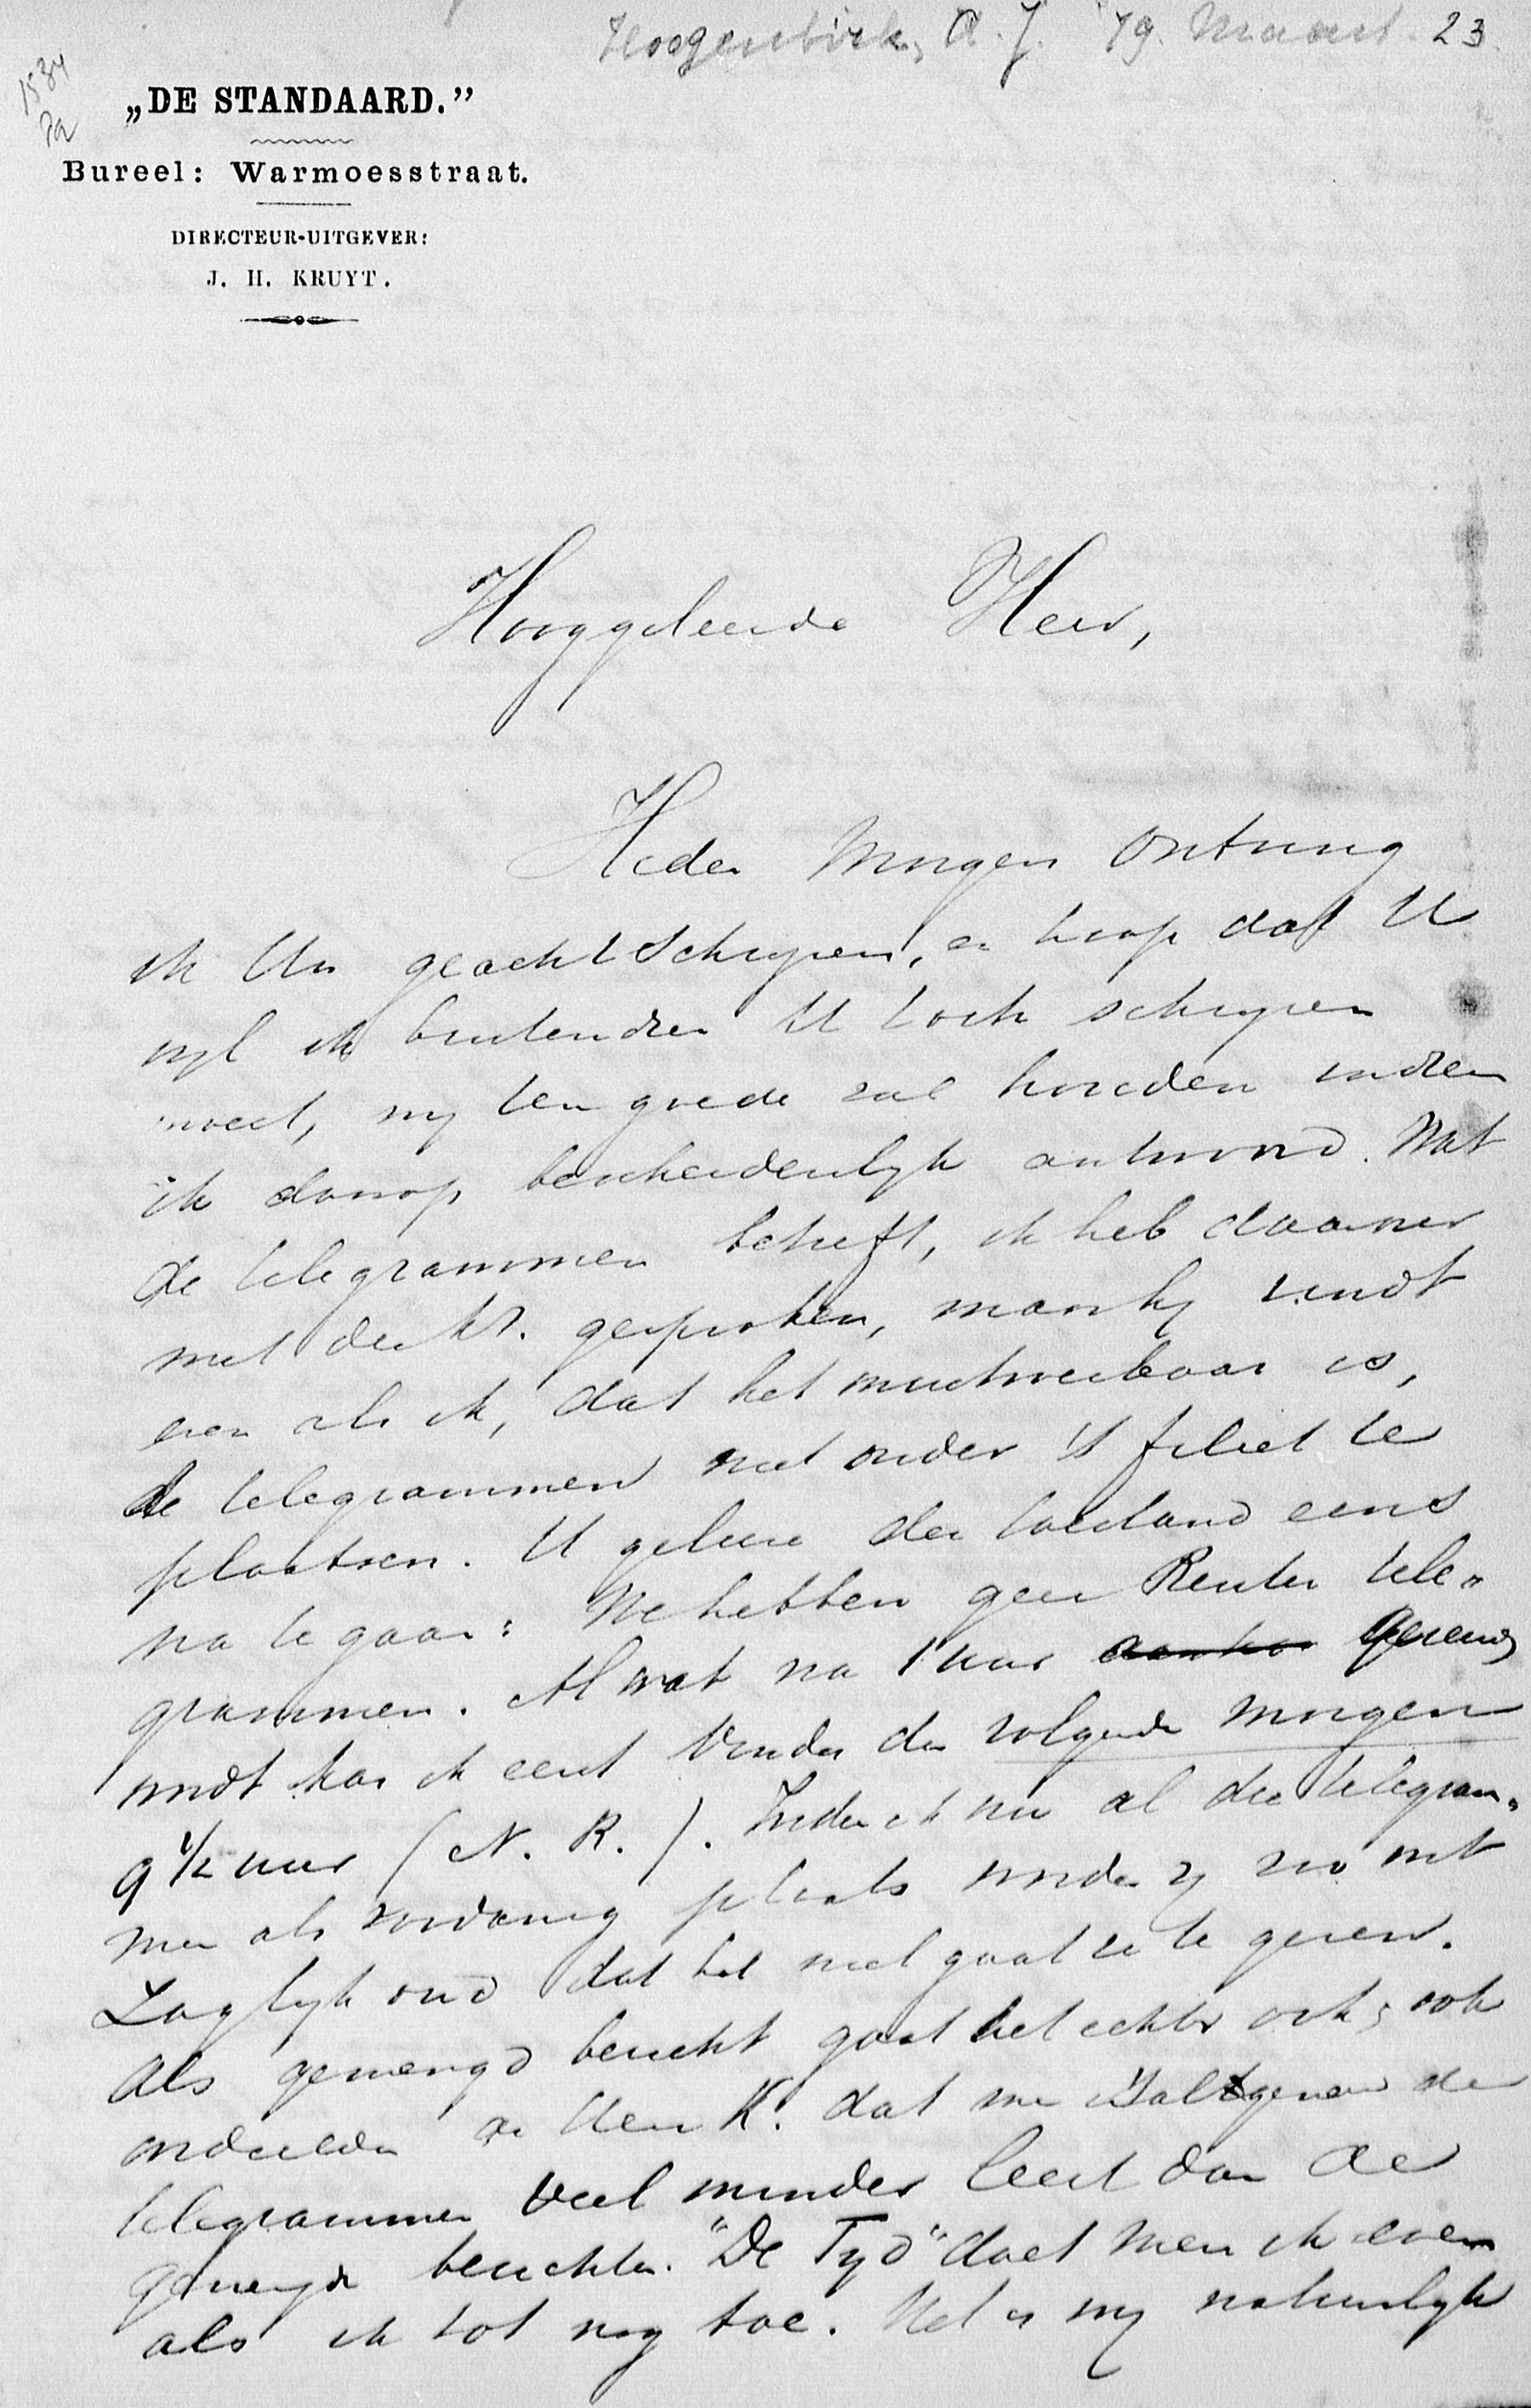 Hoogenbirk, A. J. '79. Maart. 23.
1534
Pa
„DE STANDAARD.”
Bureel: Warmoesstraat.
DIRECTEUR-UITGEVER:
J. H. KRUYT.
Hooggeleerde Heer,
Heden morgen ontving
ik Uw geacht schrijven, en hoop dat U
wijl ik buitendien U toch schrijven
moest, mij ten goede zal houden indien
ik daarop bescheidenlijk antwoord. Wat
de telegrammen betreft, ik heb daarover
met den Hr. gesproken, maar hij vindt
even als ik, dat het
de telegrammen niet onder 't filet te
plaatsen. U gelieve den toestand eens
na te gaan: We hebben geen Reuter tele-
grammen. Al wat na 1 uur geseind
wordt kan ik eerst vinden den volgenden morgen
9 1/2 uur (N. R.). Indien ik nu al die telegram-
men als zoodanig plaats worden zij zoo ont
zaglijk oud dat het niet gaat ze te geven.
Als gemengd bericht gaat het echter ook; ook
oordeelden de Heer K. dat men de
telegrammen veel minder leest dan de
gemengde berichten. "De Tijd" doet meen ik even
als ik tot nog toe. Het is mij natuurlijk